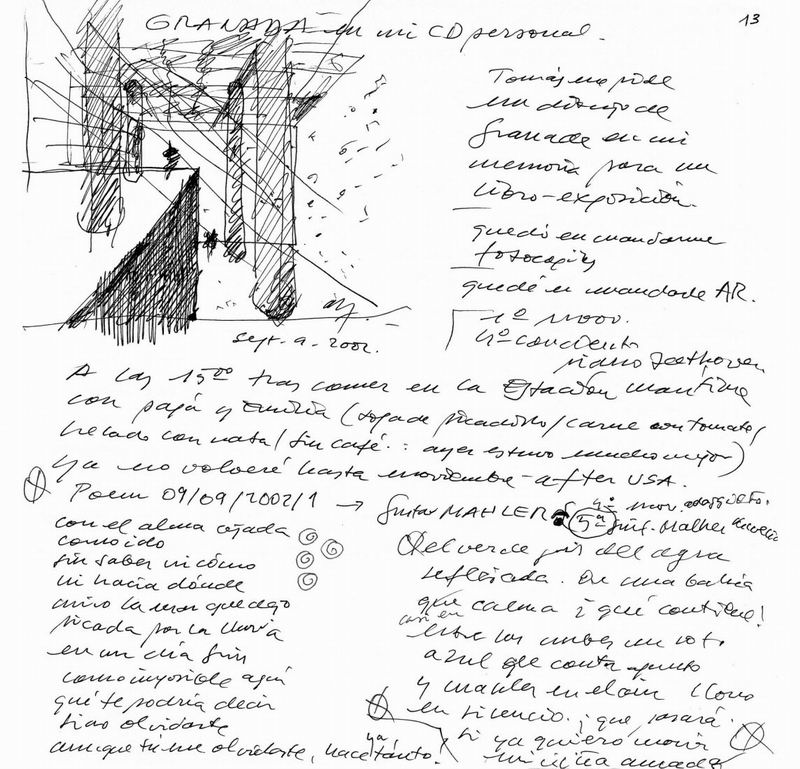 GRANADA en mi CD personal.
13
Tomás me pide
un dibujo de
Granada en mi
memoria para un
libro-exposición.
quedó en mandarme
fotocopias
quedé en mandarle AR.
1º mov.
4º concierto
piano Beethoven
sept. 9. 2002.
A las 15:00 tras comer en la Estación marítima
con papá y Emilia (sopa de picadillo/carne con tomate/
helado con nata/sin café.: ayer estuvo mucho mejor)
ya no volveré hasta noviembre - after USA.
Poem 09/09/2002/1 → Gustav MAHLER
4º mov. adaggieto.
5ª Sinf. Malher
con el alma
como ido
sin saber ni cómo
ni hacia dónde
miro la mar que dejo
picada por la lluvia
en un día sin
como imposible aquí
qué te podría decir
sino olvidarte
aunque tú me olvidaste, hace ya tanto!
del verde gris del agua
reflejada. En una bahía
que calma ¡qué contiene!
casi en
entre las nubes un roto
azul que contra apunto
y mahler en el aire llora
en silencio. ¡que pasará.
si ya quiero morir
mi niña amada